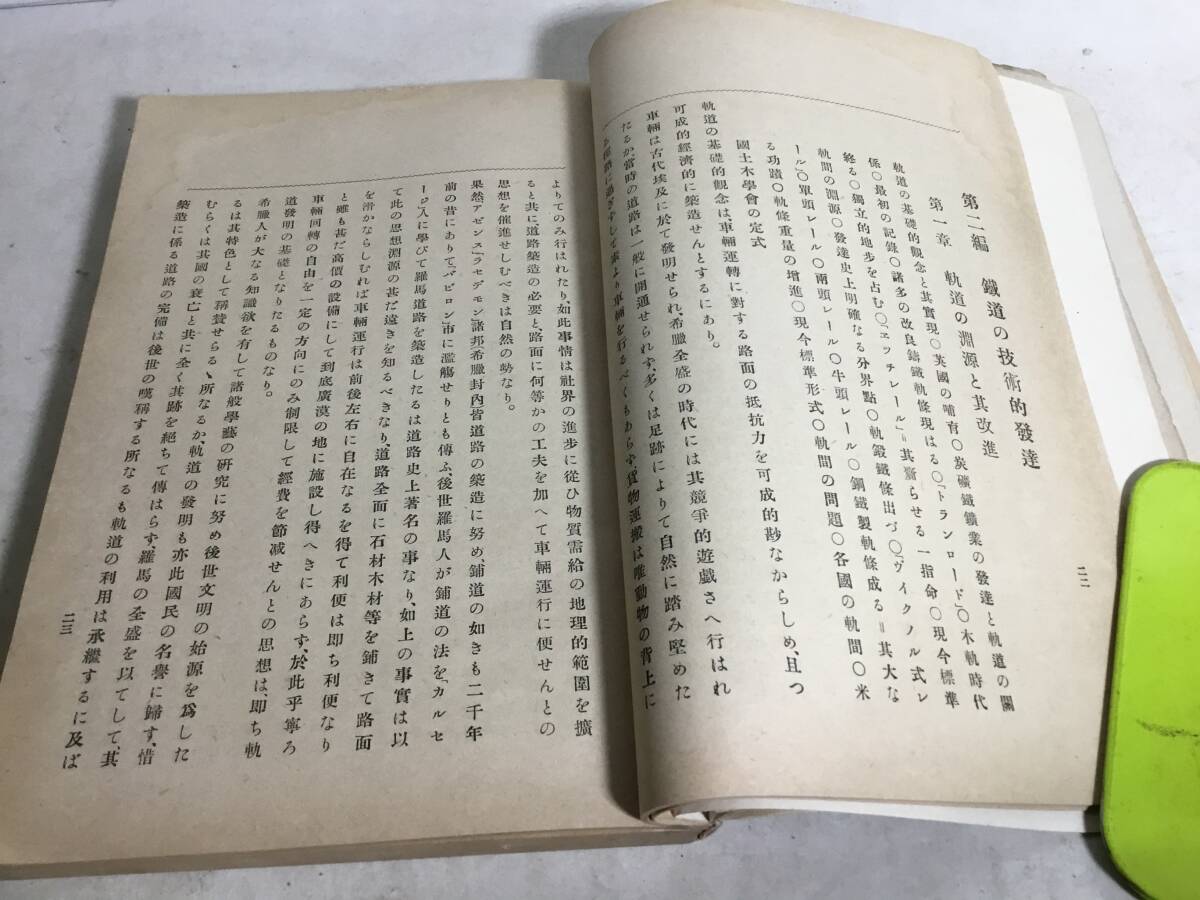 第二編　鐵道の技術的發達
第一章　軌道の淵源と其改進
軌道の基礎的觀念と其實現〇英國の哺育〇炭礦鐵鑛業の發達と軌道の關
係〇最初の記錄〇諸多の改良鑄鐵軌條現はる〇「トランロード」〇木軌時代
終る〇獨立的地步を占む〇「ヱッチレール」＝其齎らせる一指命〇現今標準
軌間の淵源〇發達史上明確なる分界點〇軌鍛鐵條出づ〇「ヴイクノル式レ
ール」〇單頭レール〇兩頭レール〇牛頭レール〇鋼鐵製軌條成る＝其大な
る功蹟〇軌條重量の增進〇現今標準形式〇軌間の問題〇各國の軌間〇米
國土木學會の定式
軌道の基礎的觀念は、車輛運轉に對する路面の抵抗力を可成的尠なからしめ、且つ
可成的經濟的に築造せんとするにあり。
車輛は古代埃及に於て發明せられ、希臘全盛の時代には其競爭的遊戲さへ行はれ
たるか、當時の道路は一般に開通せられず、多くは足跡によりて自然に踏み堅めた
る徑路に過ぎずして素より車輛を行るべくもあらず、貨物運搬は唯動物の背上に
二二
よりてのみ行はれたり、如此事情は社界の進步に從ひ物質需給の地理的範圍を擴
ると共に道路築造の必要と路面に何等かの工夫を加へて車輛運行に便せんとの
思想を催進せしむべきは自然の勢なり。
果然「アゼンス」「ラセデモン」諸邦希臘封內皆道路の築造に努め、鋪道の如きも二千年
前の昔にありて、「バビロン」市に濫觴せりとも傳ふ、後世羅馬人が鋪道の法を「カルセ
ージ」人に學びて羅馬道路を築造したるは道路史上著名の事なり、如上の事實は以
て此の思想淵源の甚だ遠きを知るべきなり、道路全面に石材木材等を鋪きて路面
を滑かならしむれば車輛運行は前後左右に自在なるを得て利便は即ち利便なり
と雖も甚だ高價の設備にして到底廣漠の地に施設し得へきにあらず、於此乎寧ろ
車輛回轉の自由を一定の方向にのみ制限して經費を節減せんとの思想は、即ち軌
道發明の基礎となりたるものなり。
希臘人が大なる知識欲を有して諸般學藝の研究に努め後世文明の始源を爲した
るは其特色として稱賛せらるゝ所なるか、軌道の發明も亦此國民の名譽に歸す、惜
むらくは其國の衰亡と共に全く其跡を絕ちて傳はらず、羅馬の全盛を以てして、其
築造に係る道路の完備は後世の嘆稱する所なるも軌道の利用は承繼するに及ば
二三